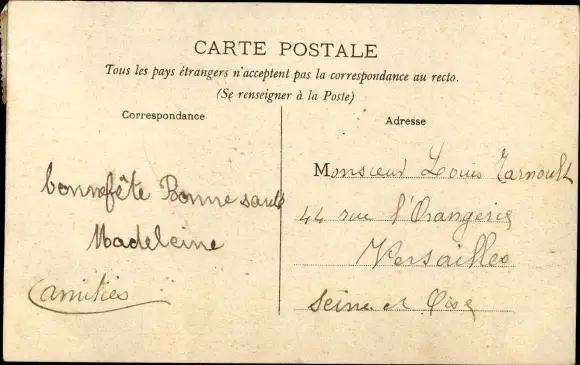 CARTE POSTALE
Tous les pays étrangers n'acceptent pas la correspondance au recto.
(Se renseigner à la Poste)
Correspondance
bonne fête Bonne santé
Madeleine
Amitiés
Adresse
Monsieur Louis
44 rue l'Orangerie
Versailles
Seine et Oise